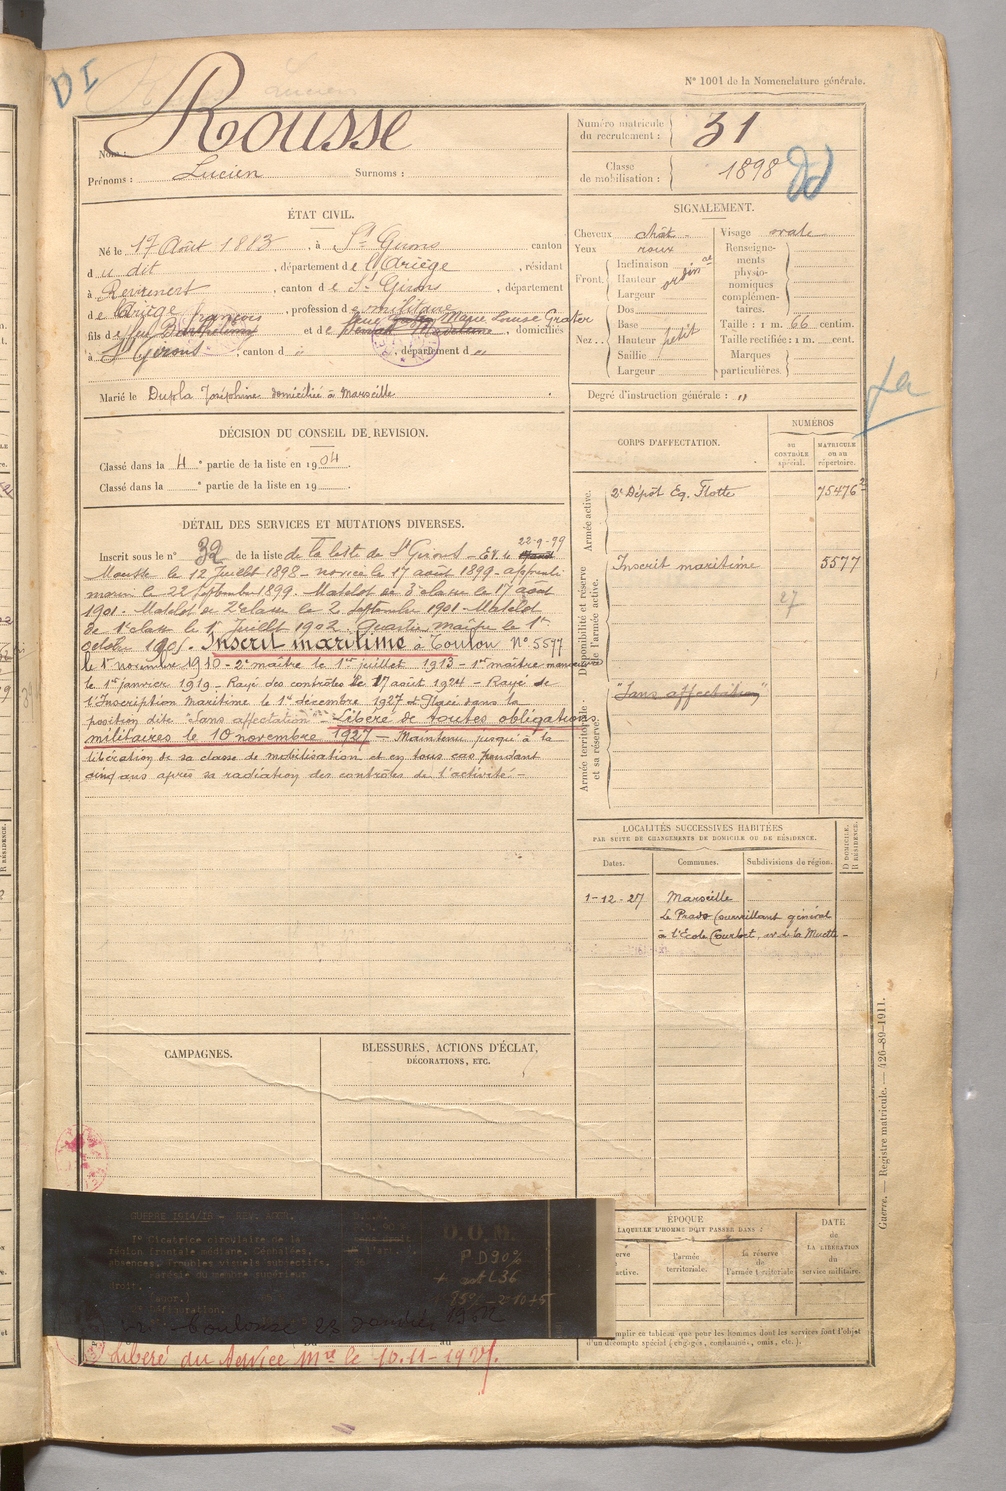 DI
N° 1001 de la Nomenclature générale.
Nom : Rousse
Prénoms : Lucien Surnoms :
Numéro matricule du recrutement : 31
Classe de mobilisation : 1898
ÉTAT CIVIL.
Né le 17 Août 1883, à St Girons canton
du dit, département de l'Ariège, résidant
à Rivèrenert, canton de St Girons, département
de l'Ariège, profession de militaire
françois Marie Louise Grater
fils de feu Barthélemy et de , domiciliés
à St Girons, canton d " , département d "
Marié le Dupla Joséphine domiciliée à Marseille
SIGNALEMENT.
Cheveux chât.
Yeux roux
Front. Inclinaison
Hauteur
Largeur
Nez.. Dos
Base
Hauteur petit
Saillie
Largeur
Visage ovale
Renseignements physionomiques complémentaires.
Taille : 1 m. 66 centim.
Taille rectifiée : 1 m. cent.
Marques particulières.
Degré d'instruction générale : "
DÉCISION DU CONSEIL DE REVISION.
Classé dans la 4e partie de la liste en 1904.
Classé dans la e partie de la liste en 19
CORPS D'AFFECTATION.
NUMÉROS
au CONTRÔLE spécial.
MATRICULE ou au répertoire.
Armée active.
2e Dépôt Eq. Flotte 75476 2
Disponibilité et réserve de l'armée active.
Inscrit maritime 5577
27
Armée territoriale et sa réserve.
"Sans affectation"
DÉTAIL DES SERVICES ET MUTATIONS DIVERSES.
22-9-99
Inscrit sous le n° 32 de la liste de la liste de St Girons - EV. le
Mousse le 12 Juillet 1898 - novice le 17 août 1899 - apprenti
marin le 22 septembre 1899. Matelot de 3e classe le 17 août
1901 - Matelot de 2e classe le 2 septembre 1901 - Matelot
de 1e classe le 1er Juillet 1902. Quartier maître le 1er
octobre 190 . Inscrit maritime à Toulon N° 5577
le 1er novembre 1910 - 2e maître le 1er juillet 1913 - 1er maître manœuvre
le 1er janvier 1919 - Rayé des contrôles le 17 août 1924 - Rayé de
l'Inscription Maritime le 1er décembre 1927 et Placé dans la
position dite "Sans affectation" - Libéré de toutes obligations
militaires le 10 novembre 1927 - Maintenu jusqu'à la
libération de sa classe de mobilisation et en tous cas pendant
cinq ans après sa radiation des contrôles de l'activité -
LOCALITÉS SUCCESSIVES HABITÉES
PAR SUITE DE CHANGEMENTS DE DOMICILE OU DE RÉSIDENCE.
Dates. Communes. Subdivisions de région. D DOMICILE. R RÉSIDENCE.
1-12-27 Marseille
Le Prado (surveillant général
à l'École Courbet, de la Muette -
CAMPAGNES.
BLESSURES, ACTIONS D'ÉCLAT,
DÉCORATIONS, ETC.
1° Cicatrice circulaire de la
région frontale médiane. Céphalées,
absences. Troubles visuels subjectifs.
du membre supérieur
droit.
Toulouse 23
ÉPOQUE
LAQUELLE L'HOMME DOIT PASSER DANS :
l'armée territoriale.
la réserve de l'armée territoriale
DATE de LA LIBÉRATION du service militaire.
emplir ce tableau que pour les hommes dont les services font l'objet
d'un décompte spécial (engagés, condamnés, omis, etc.).
Libéré du Service Mre le 10-11-1927.
Guerre. — Registre matricule. — 426-89-1911.